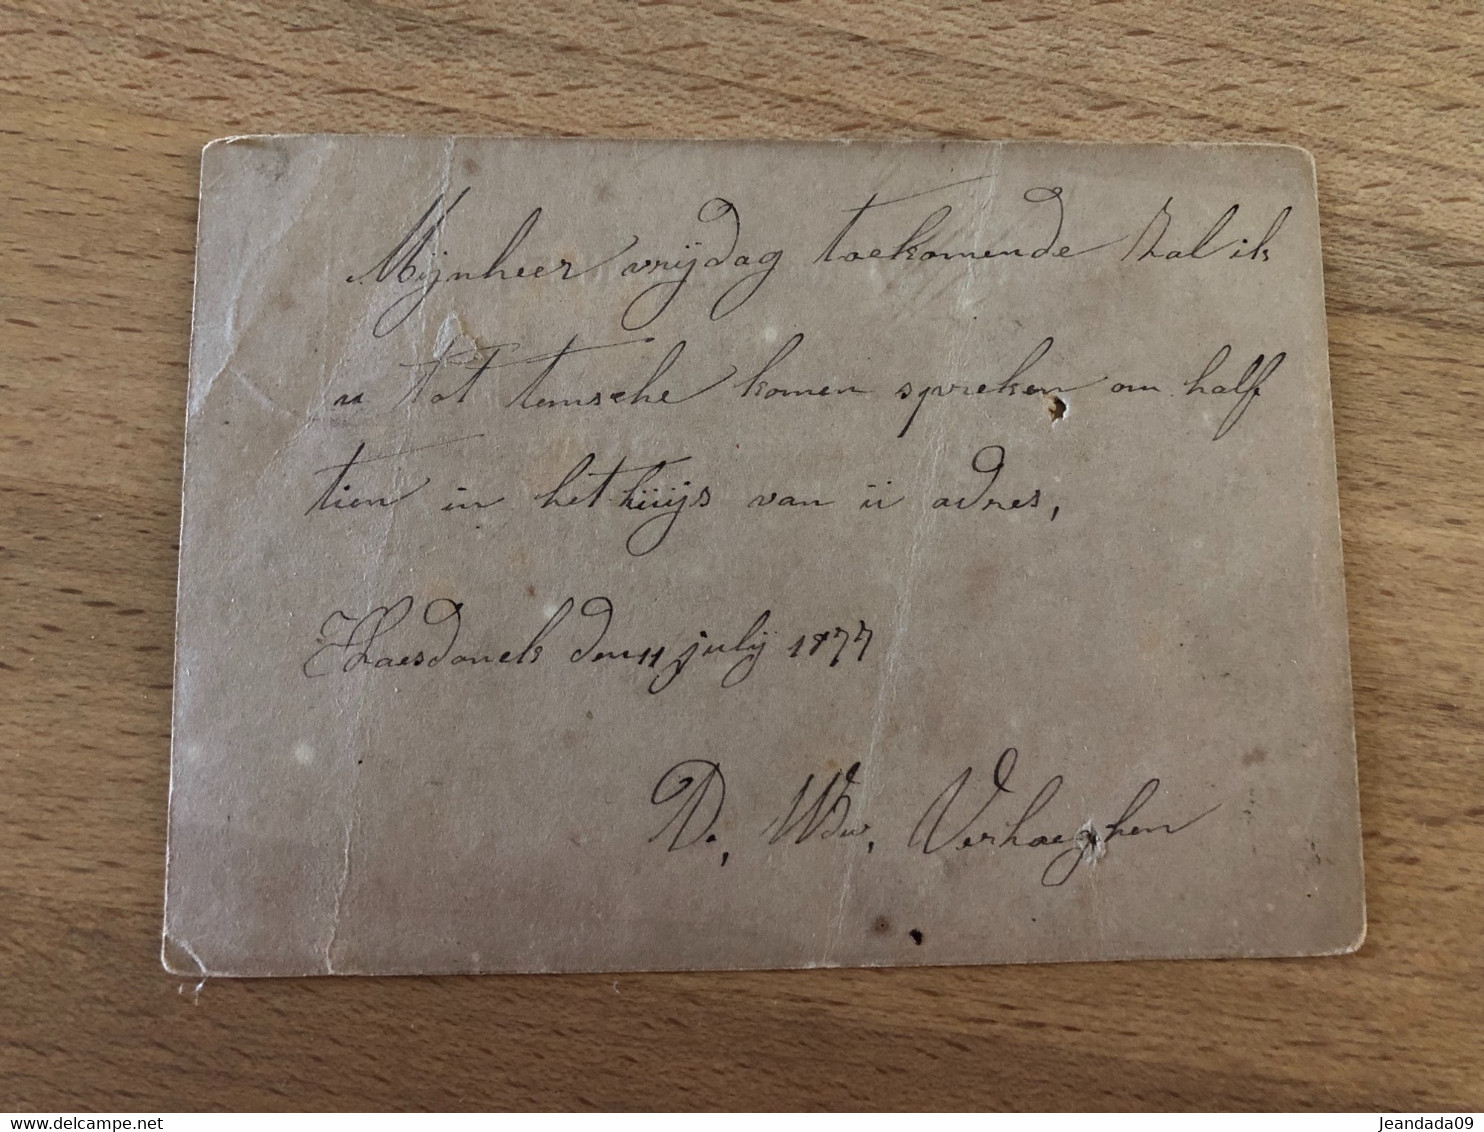 Mijnheer vrijdag toekomende Zal ik
u tot temsche komen spreken om half
tien in het huijs van ü adres,
Haesdonck den 11 july 1877
D. Wdw, Verhaeghen
jeandada09